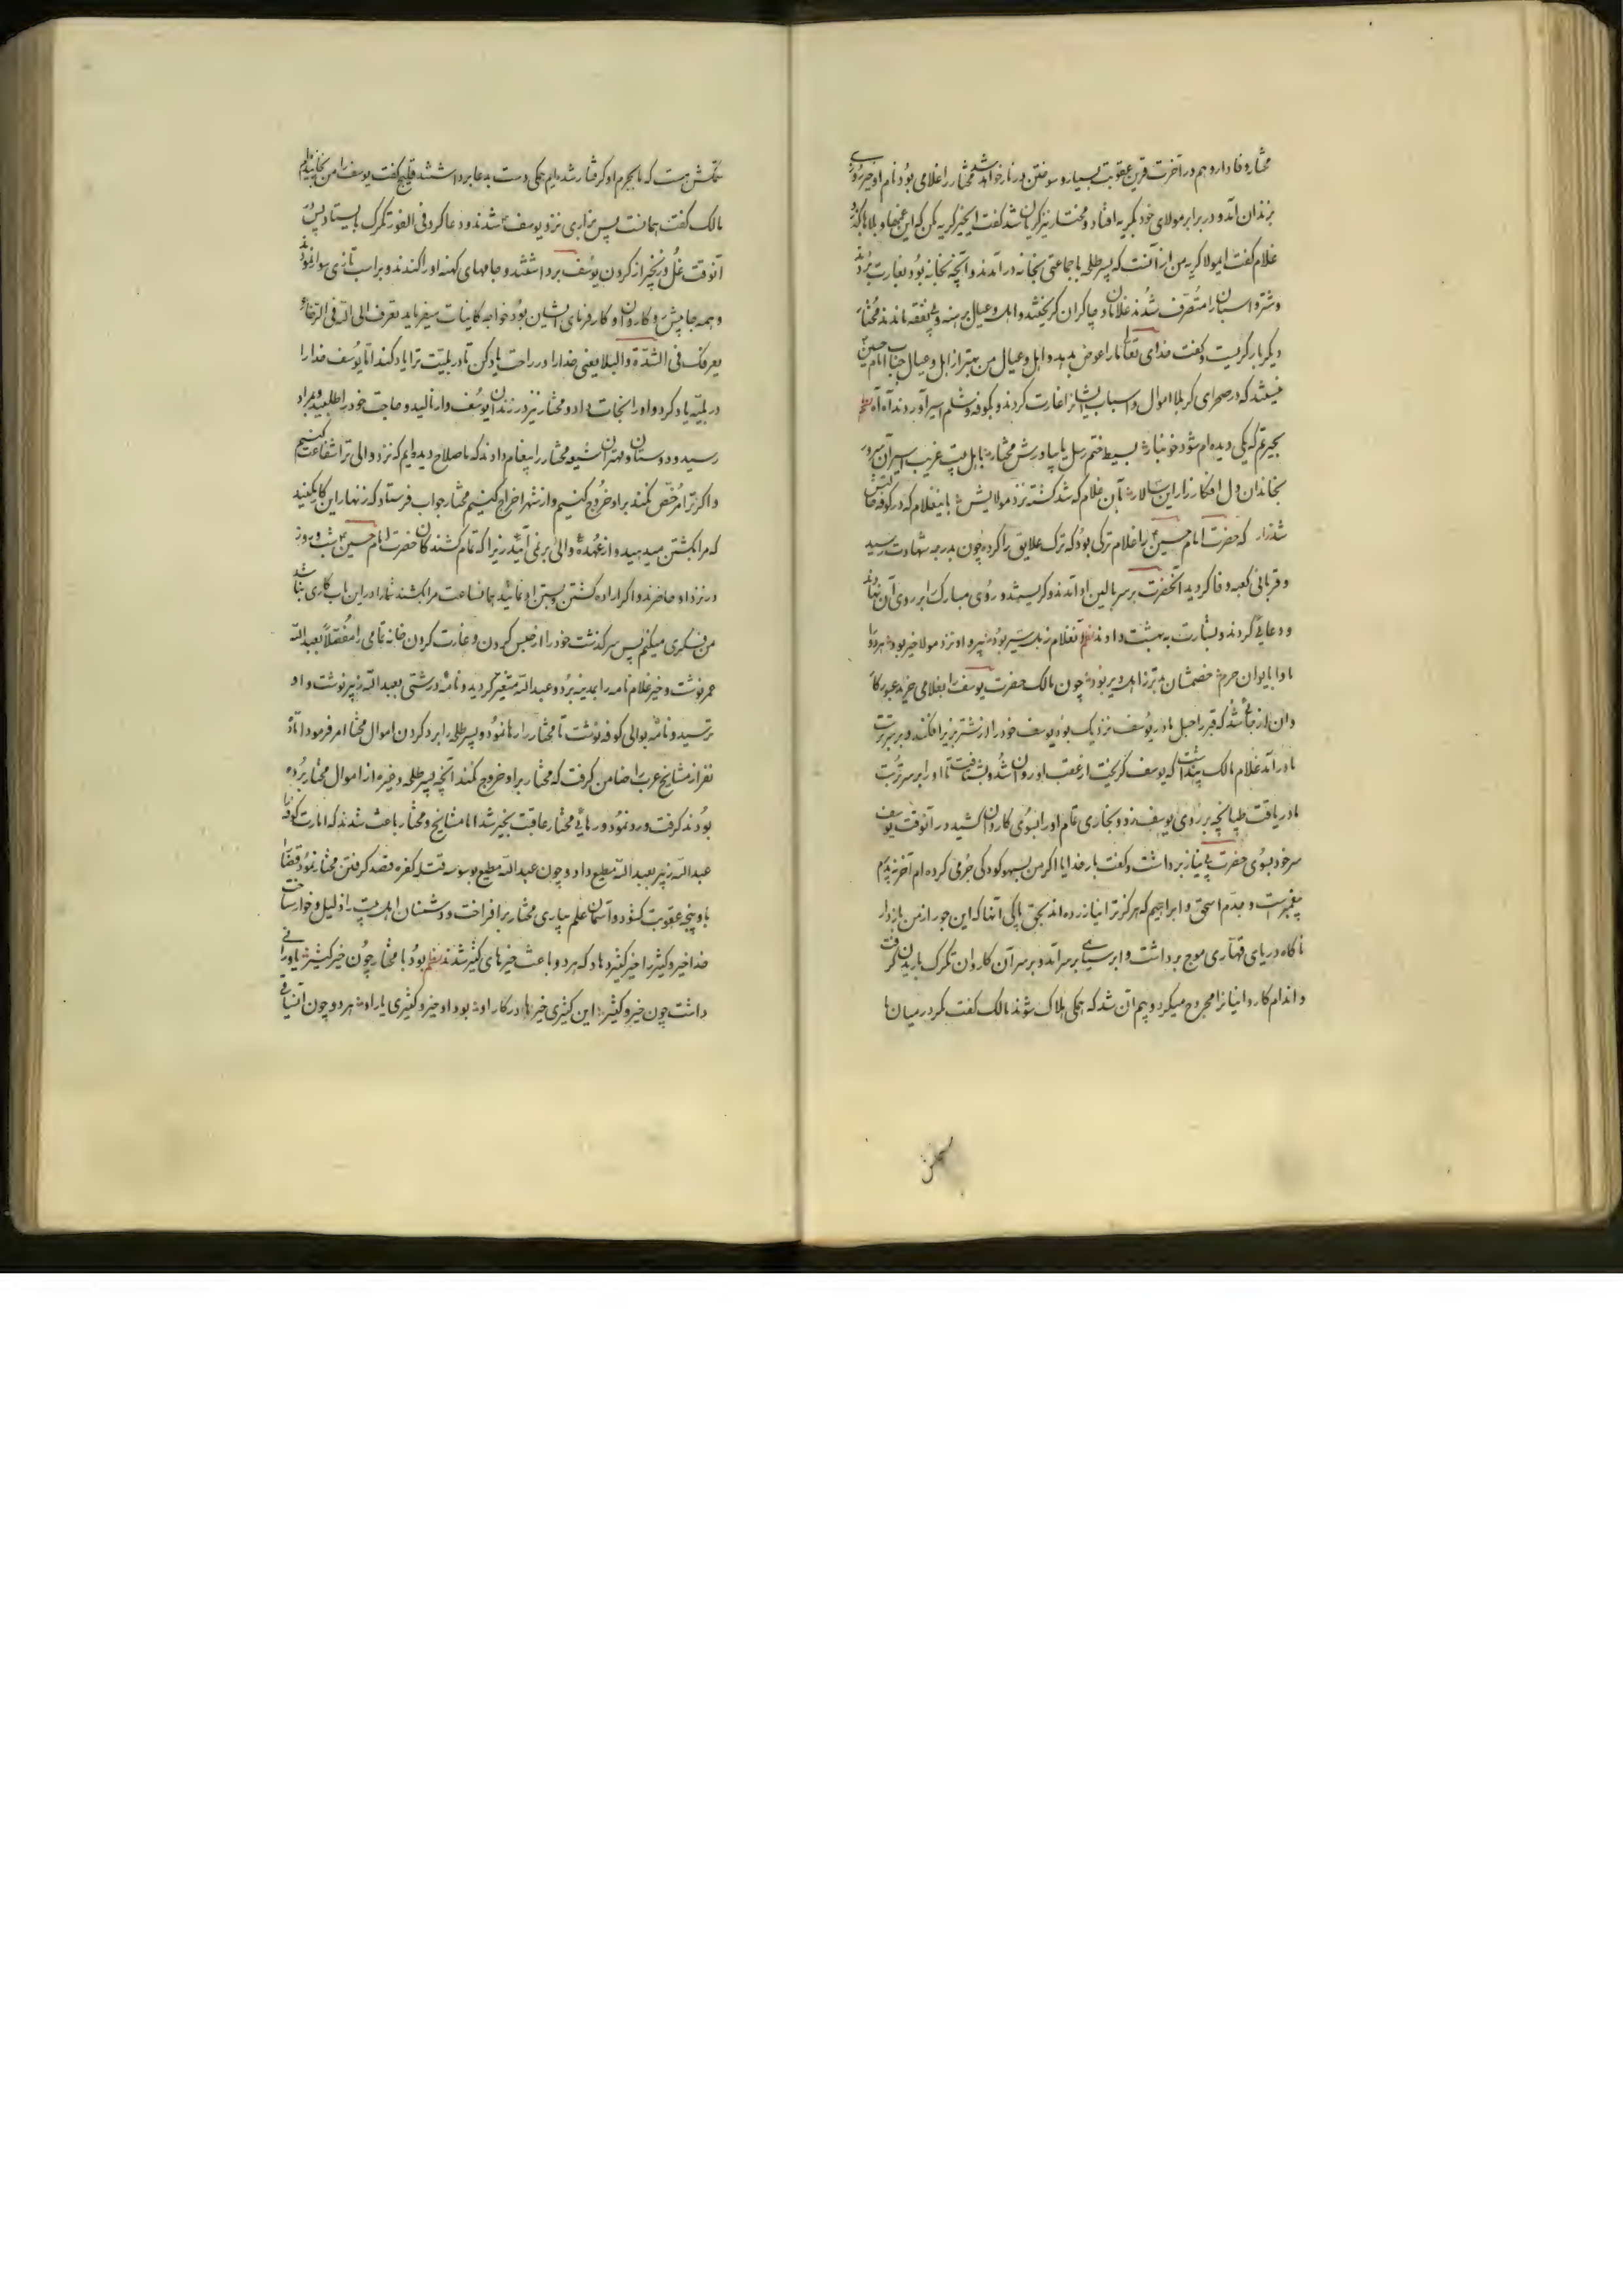 مختار وفادار و هم در آخرت قرین عقوبت بسیار و سوختن در نار خواهد شد مختار را غلامی بود نام او خیر روزی
بزندان آمد و در برابر مولای خود بگریه افتاد و مختار نیز گریان شد گفت ای خیر گریه مکن که این غمها و بلاها بگذرد
غلام گفت ایمولا گریه من از آنست که پسر طلحه با جماعتی بخانه در آمدند و آنچه بخانه بود بغارت بردند
و شتر و اسبان را متصرف شدند غلامان و چاکران گریختند و اهل و عیال برهنه و بی نفقه ماندند مختار
دیگر بار گریست و گفت خدای تعالی ما را عوض بدهد و اهل و عیال من بهتر از اهل و عیال جناب امام حسین
نیستند که در صحرای کربلا اموال و اسباب ایشانرا غارت کردند و بکوفه و شام اسیر آوردند آه آه نظم
بحیرتم که یکی دیده ام شود خونبار
بخاندان دل افکار زار این سالار آن غلام که شد کشته نزد مولایش باینغلام که در کوفه
که حضرت امام حسین را غلام ترکی بود که ترک علایق را کرده چون بدرجه شهادت رسید
و قربانی کعبه وفا گردید آنحضرت بر سر بالین او آمدند و گریستند و روی مبارک بر روی آن نهاد
و دعایی کردند و بشارت به بهشت دادند نظم آنغلام
چون مالک حضرت یوسف را بغلامی خرید عبور کا
وان از جائی شد که قبر راحیل مادر یوسف نزدیک بود یوسف خود را از شتر بزیر افکند و بر سر تربت
مادر آمد غلام مالک پنداشت که یوسف گریخت از عقب او روان شد و بشتافت تا او را بر سر تربت
مادر یافت طپانچه بر روی یوسف زد و بخاری تمام او را بسوی کاروان کشید در آنوقت یوسف
سر خود بسوی حضرت بی نیاز برداشت و گفت بار خدایا اگر من بسهو کودکی جرمی کرده ام آخر نه پدرم
پیغمبر است و جدم اسحق و ابراهیم که هرگز ترا نیازرده اند بحق پاکی آنها که این جور از من باز دار
ناگاه دریای قهاری موج برداشت و ابر سیاهی بر سر آمد و بر سر آن کاروان تگرگ باریدن گرفت
و اندام کاروانیانرا مجروح میکرد و بیم آن شد که همگی هلاک شوند مالک گفت مگر در میان ما
هست که ما بجرم او گرفتار شده ایم همگی دست بدعا برداشتند گفت یوسف را من
مالک گفت همانست پس بزاری نزد یوسف شدند و دعا کرد فی الفور تگرگ بایستاد پس
آنوقت غل و زنجیر از گردن یوسف برداشتند و جامهای کهنه او را کندند و بر اسب تازی سوار نمودند
و همه جا پیش رو کاروان و کارفرمای ایشان بود خواجه کاینات میفرماید تعرف الی الله فی الرخاء
یعرفک فی الشدة والبلا یعنی خدا را در راحت یاد کن تا در بلیت ترا یاد کند اما یوسف خدا را
در بلیه یاد کرد و او را نجات داد و مختار نیز در زندان یوسف وار نالید و حاجت خود را طلبید و بمراد
رسید و دوستان و مهتران شیعه مختار را پیغام دادند که ما صلاح دیده ایم که نزد والی ترا شفاعت کنیم
و اگر ترا مرخص نکند بر او خروج کنیم و از شهر اخراج کنیم مختار جواب فرستاد که زنهار این کار نکنید
که مرا بکشتن میدهید و از عهده والی بر نمی آئید زیرا که تمام کشندگان حضرت امام حسین شب و روز
در نزد او حاضرند و اگر اراده کشتن و بستن او نمائید همانساعت مرا بکشند شما را در این باب کاری نباشد
من فکری میکنم پس سرگذشت خود را از حبس کردن و غارت کردن خانه تمامی را مفصلا بعبدالله
عمر نوشت و خیر غلام نامه را بمدینه برد و عبدالله متغیر گردید و نامه درشتی بعبدالله زبیر نوشت و او
ترسید و نامه بوالی کوفه نوشت تا مختار را رها نمود و پسر طلحه را برد کردن اموال مختار امر فرمود اما ده
نفر از مشایخ عرب را ضامن گرفت که مختار بر او خروج نکند آنچه پسر طلحه و غیره از اموال مختار برده
بودند گرفت و رد نمود و رهائی مختار عاقبت بخیر شد اما مشایخ و مختار باعث شدند که امارت کوفه را
عبدالله زبیر بعبدالله مطیع داد و چون عبدالله مطیع بوسوسه قتله کفره قصد گرفتن مختار نمود قضا
پنجه عقوبت گشود و آسمان علم بیاری مختار برافراخت و دشمنان اهل بیت را ذلیل و خوار ساخت
خدا خیر و کثیر را خیر کثیر دهاد که هر دو باعث خیرهای کثیر شدند نظم بود با مختار چون خیر کثیر
داشت چون خیر و کثیر این کثیری خیرها در کار او بود او خیر و کثیری یار او هر دو چون